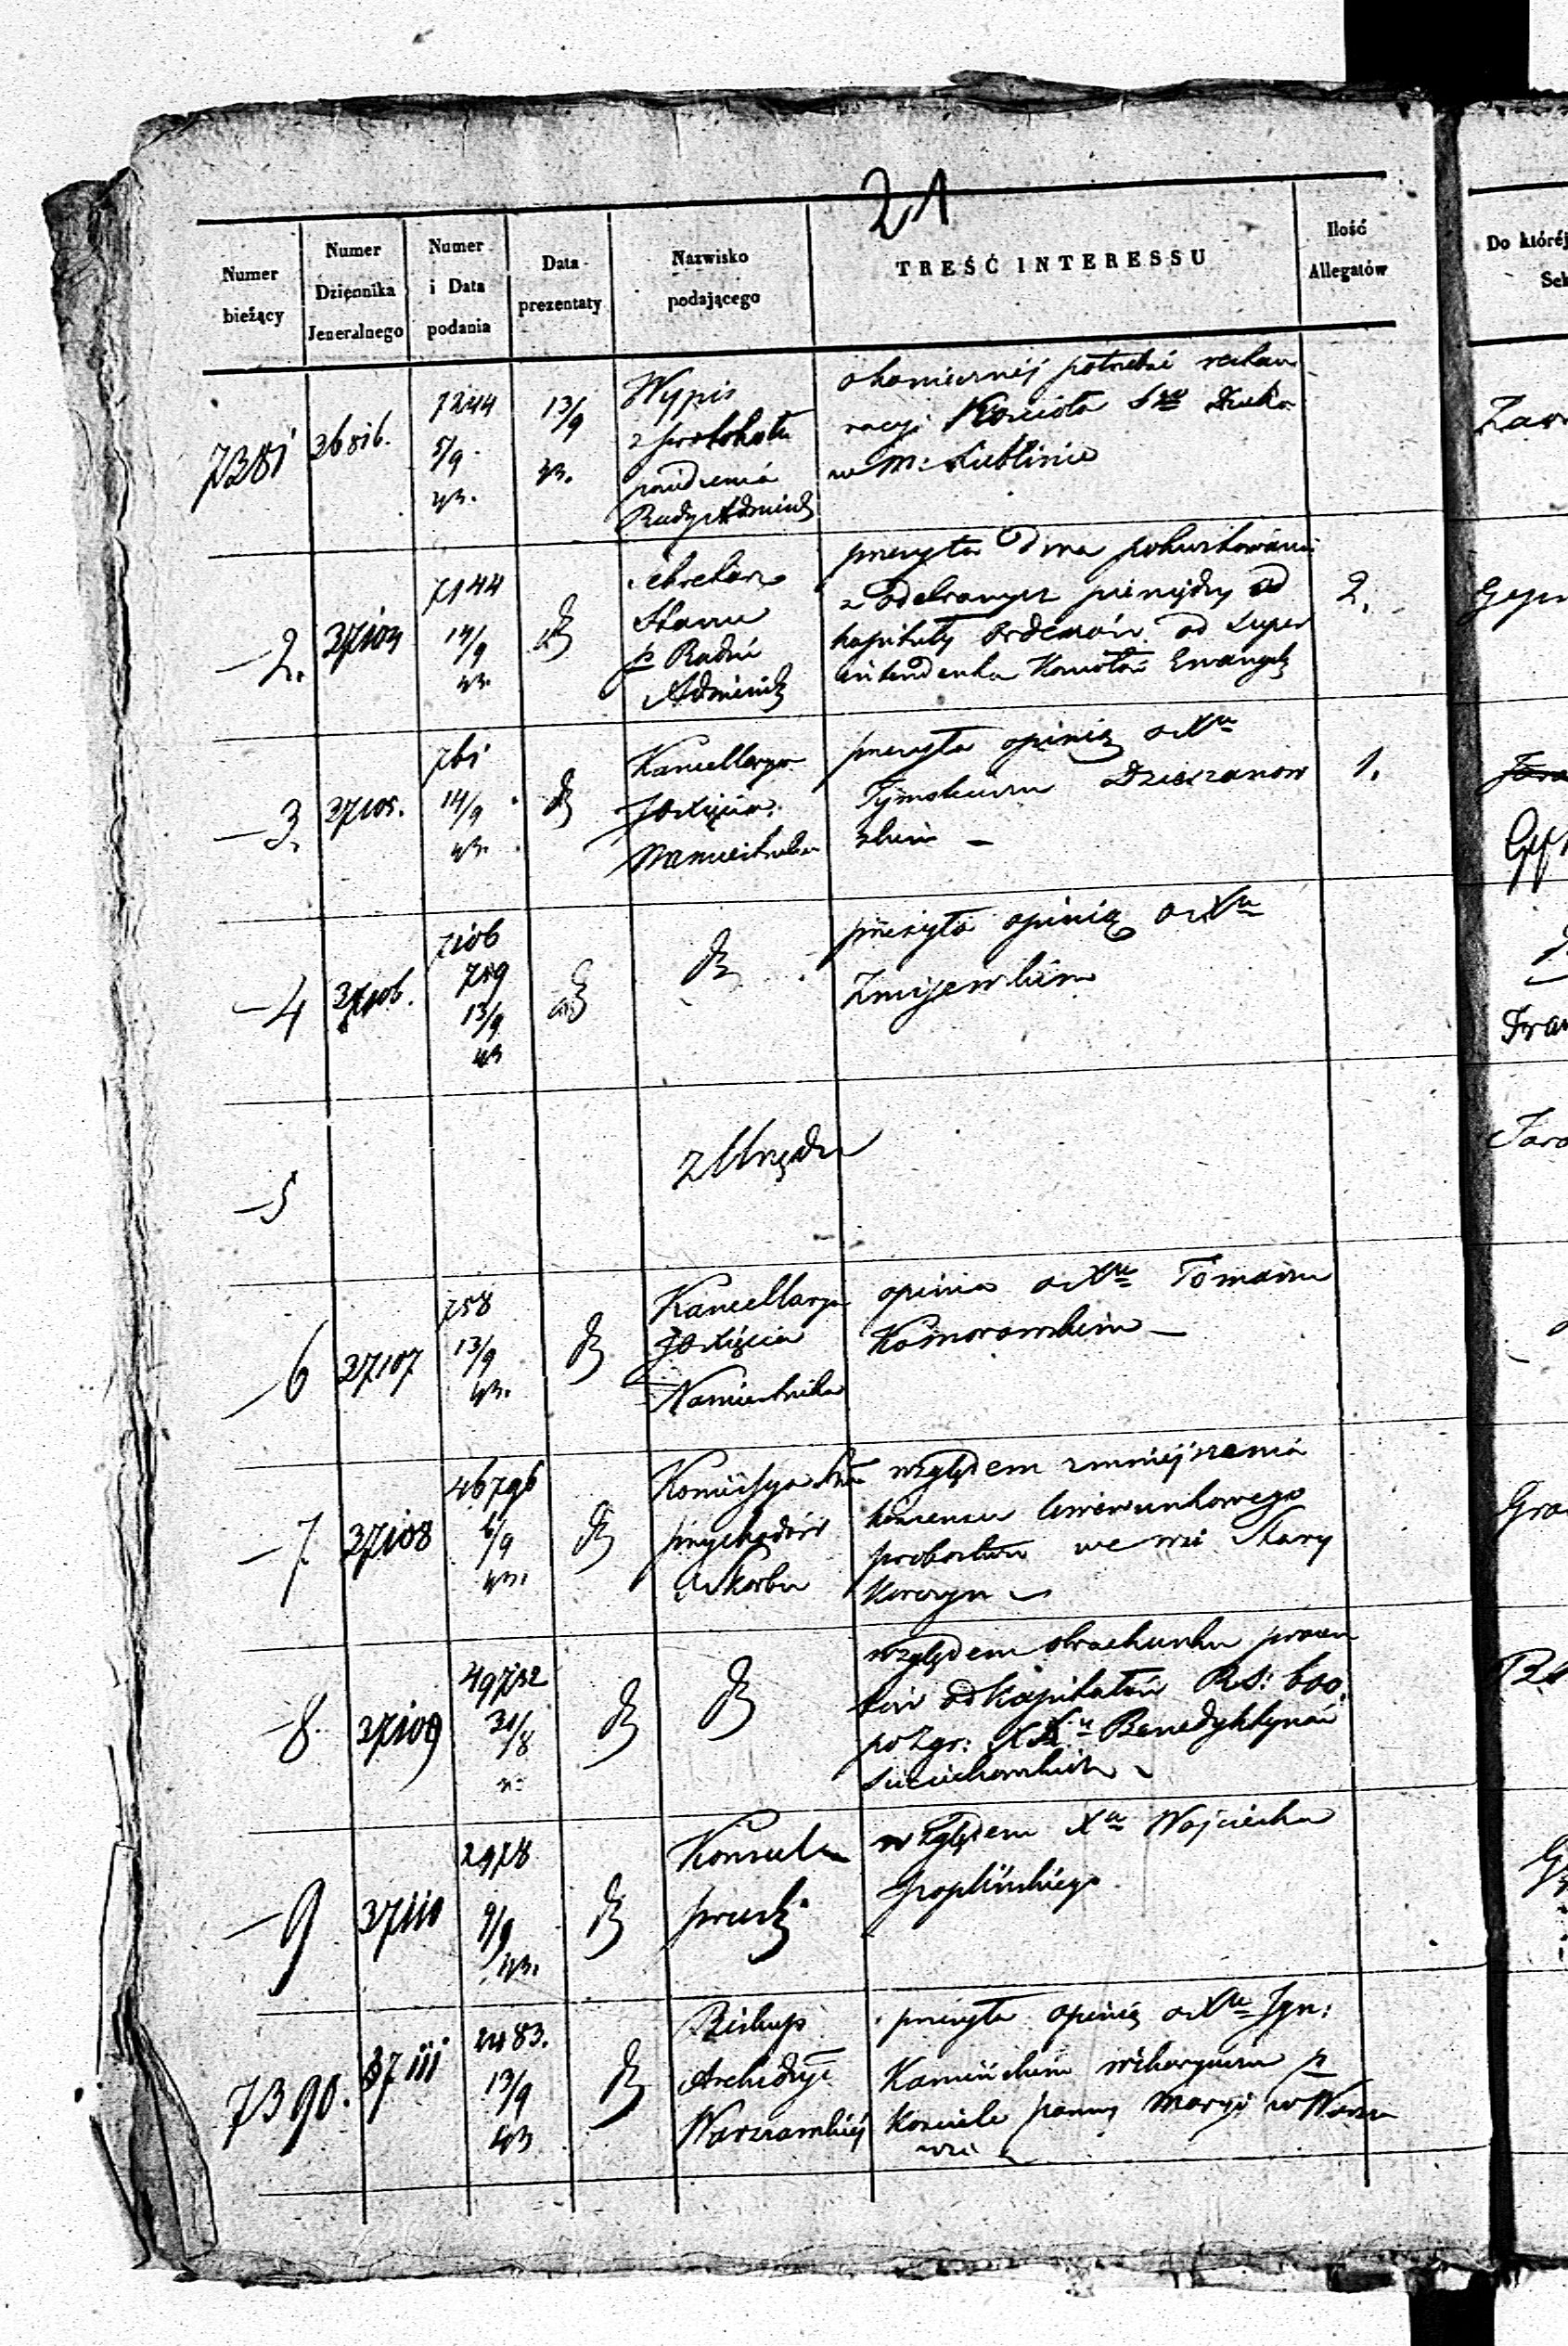 21
Numer bieżący
Numer Dziennika Jeneralnego
Numer i Data podania
Data prezentaty
Nazwisko podającego
TREŚĆ INTERESSU
Ilość Allegatów
Do któréj
7381
36816.
1244
5/9
43.
13/9
43.
Wypis
z protokołu
posiedzenia
Rady Admin
o koniecznéj potrzebie restau
racyi Kościoła Sgo Ducha
w M: Lublinie
Zaw
2.
37104
7144
14/9
43.
Sekretarz
Stanu
p Radzie
Admini
przesyła dwa pokwitowania
z odebranych pieniędzy od
kapituły Orderów od Super
intendenta Kościołów Ewangel
2.
3.
37105.
761
14/9
43.
Kancellarya
JOXięcia
Namiestnika
przesyła opinią o Xu
Tymoteuszu Dzierzanow
skim –
1.
4
37106.
7106
759
13/9
43
przesyła opinią o Xu
Zmijewskim
Fra
5
z Urzędu
Jaro
6
37107
758
13/9
43.
Kancellarya
JOXięcia
Namiestnika
opinia o Xu Tomaszu
Komorowskim –
7
37108
46796
6/9
43.
Komissya
Przychodów
i Skarbu
względem zmniejszenia
probostwa we wsi Stary
Korczyn –
Gra
8.
37109
49732
31/8
względem obrachunku procen
tów od kapitałów RS: 600.
po Zgr: XX Benedyktynów
Sieciechowskich
9
37110
2978
9/9
43.
Konsula
prusk
względem Xa Wojciecha
Goplińskiego
7390.
37111
2483.
13/9
43
Biskup
Archidye
Warszawskiéj
przesyła opinią o Xu Ign:
Kamińskim wikaryuszu p
Kościele panny Maryi w Warsza
wie